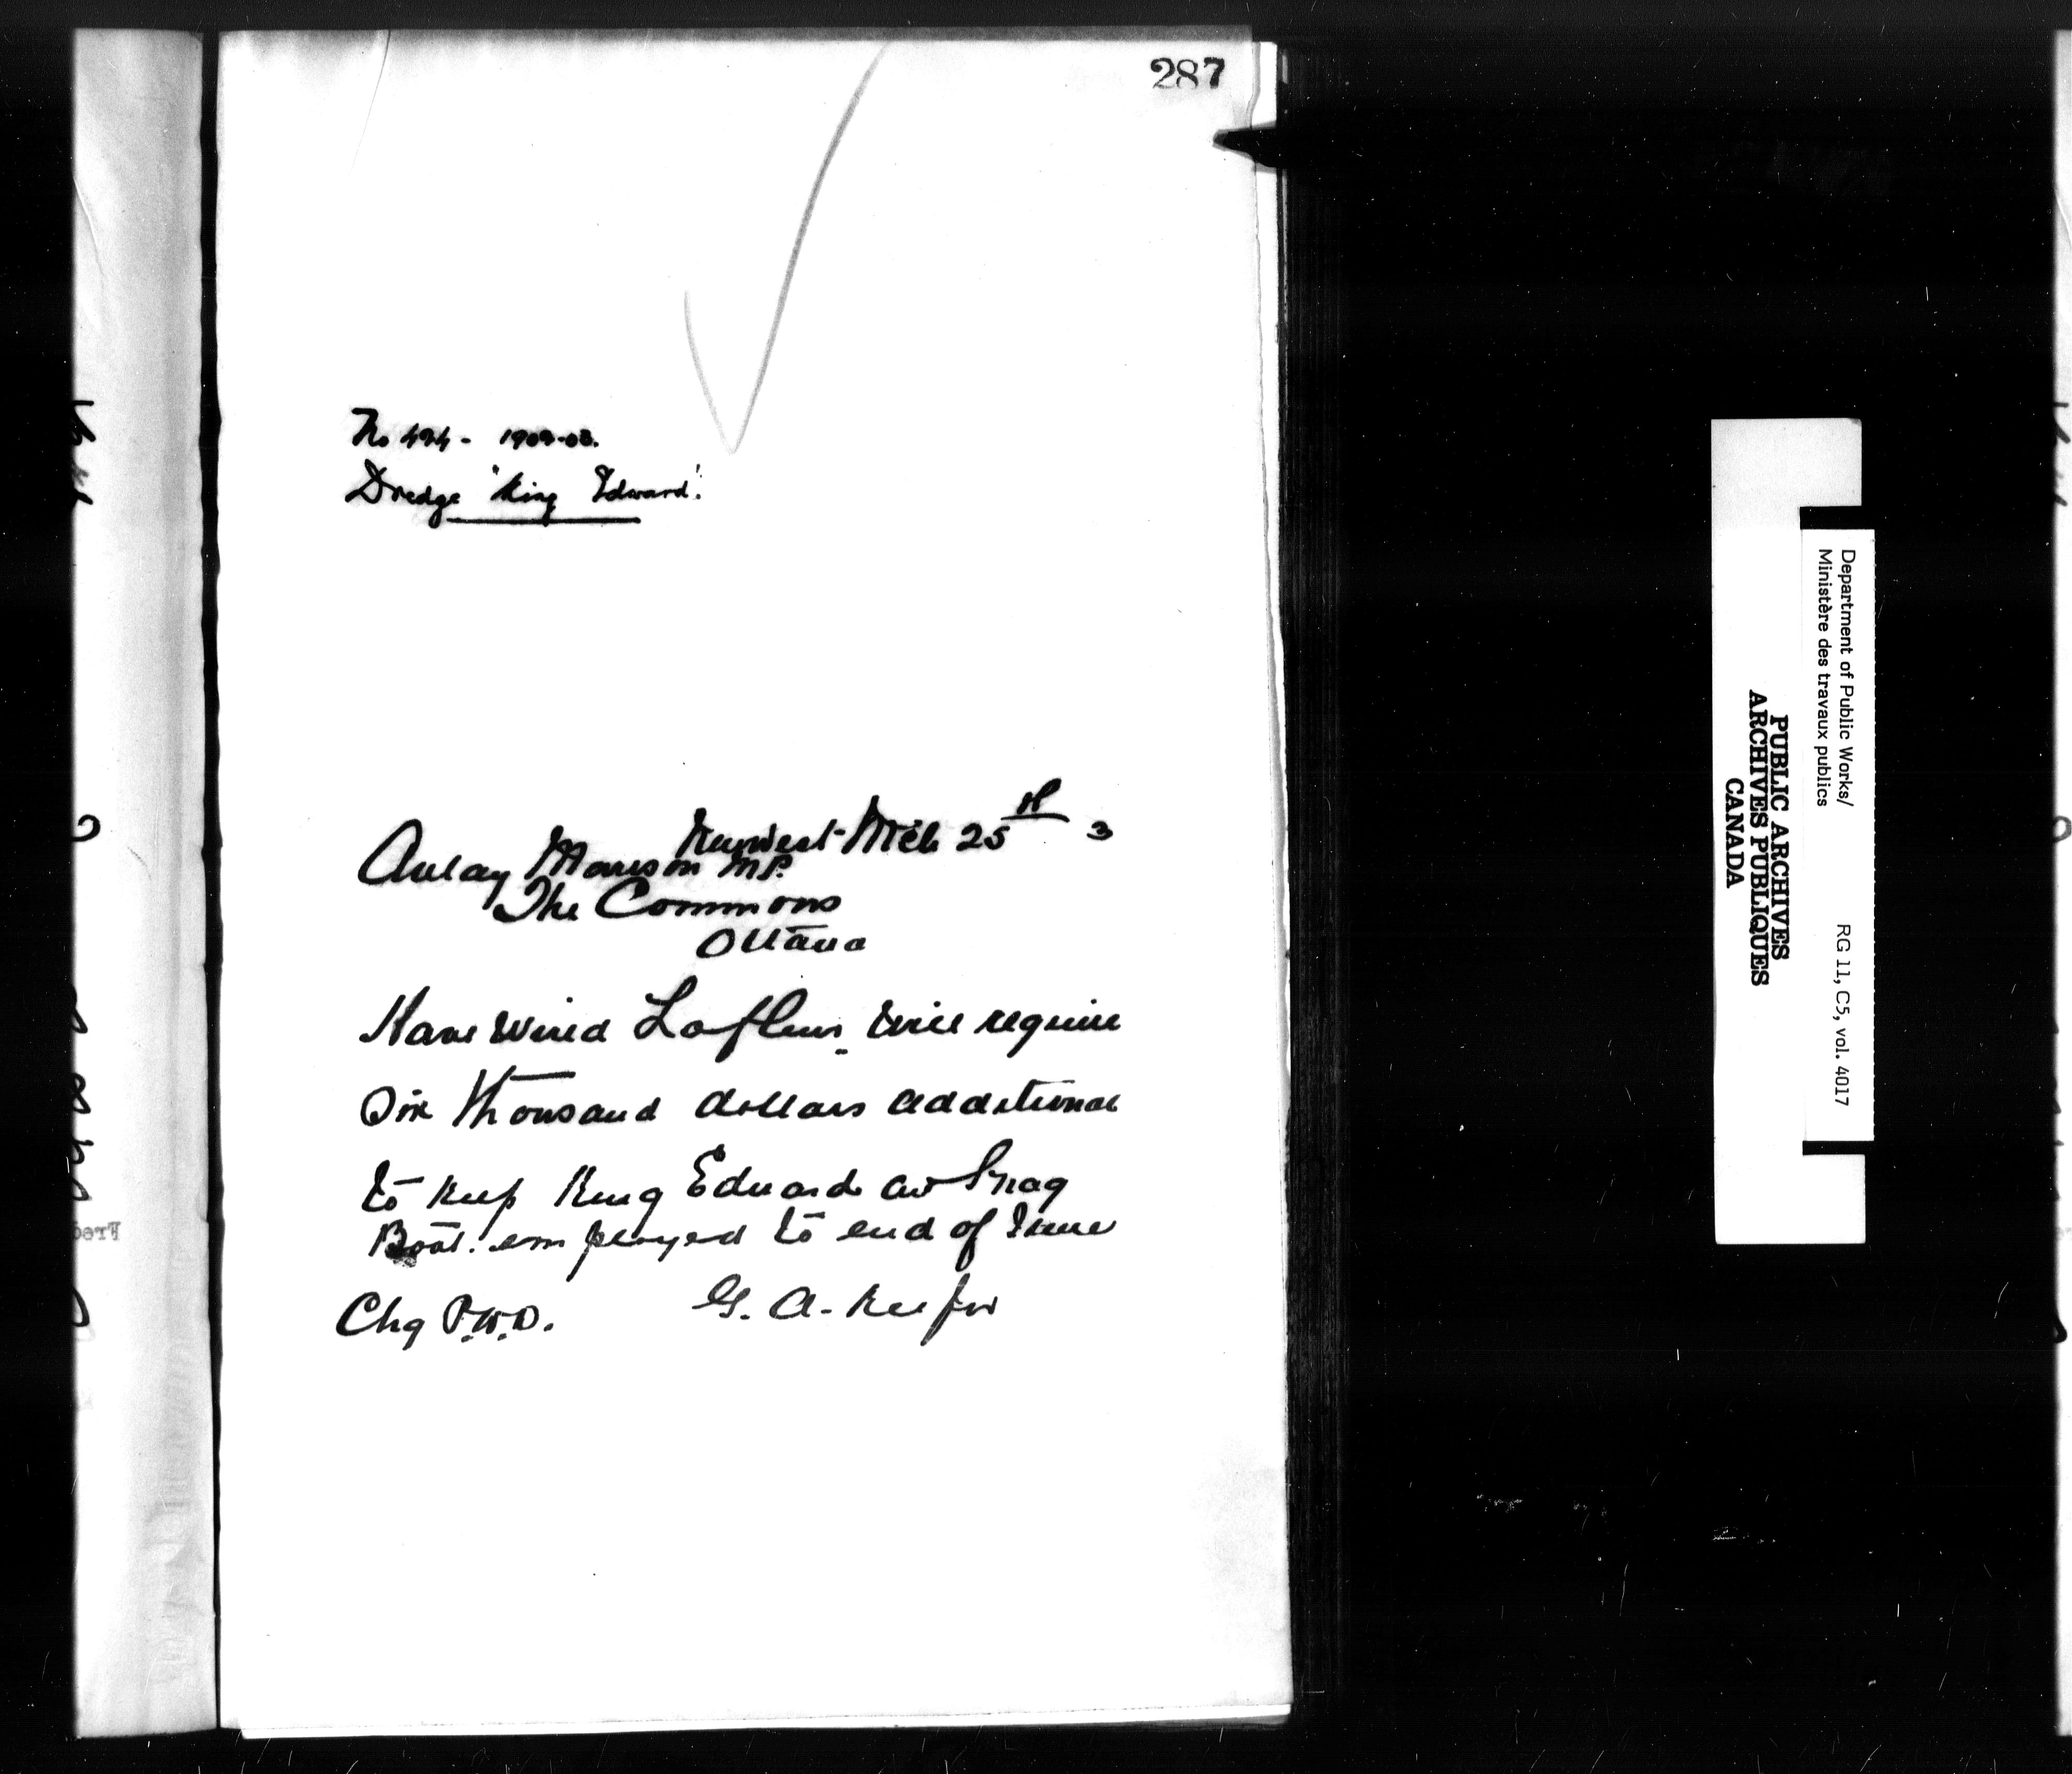 287
No 494 - 1902-03.
Dredge "King Edward".
New West- Mch 25th 3
Aulay Morrison M.P.
The Commons
Ottawa
Have wired Lafleur. Will require
Six thousand dollars additional
to keep King Edward and Snag
Boat employed to end of June
Chg P.W.D. G. A. Keefer
Department of Public Works/
Ministère des travaux publics
RG 11, C5, vol. 4017
PUBLIC ARCHIVES
ARCHIVES PUBLIQUES
CANADA